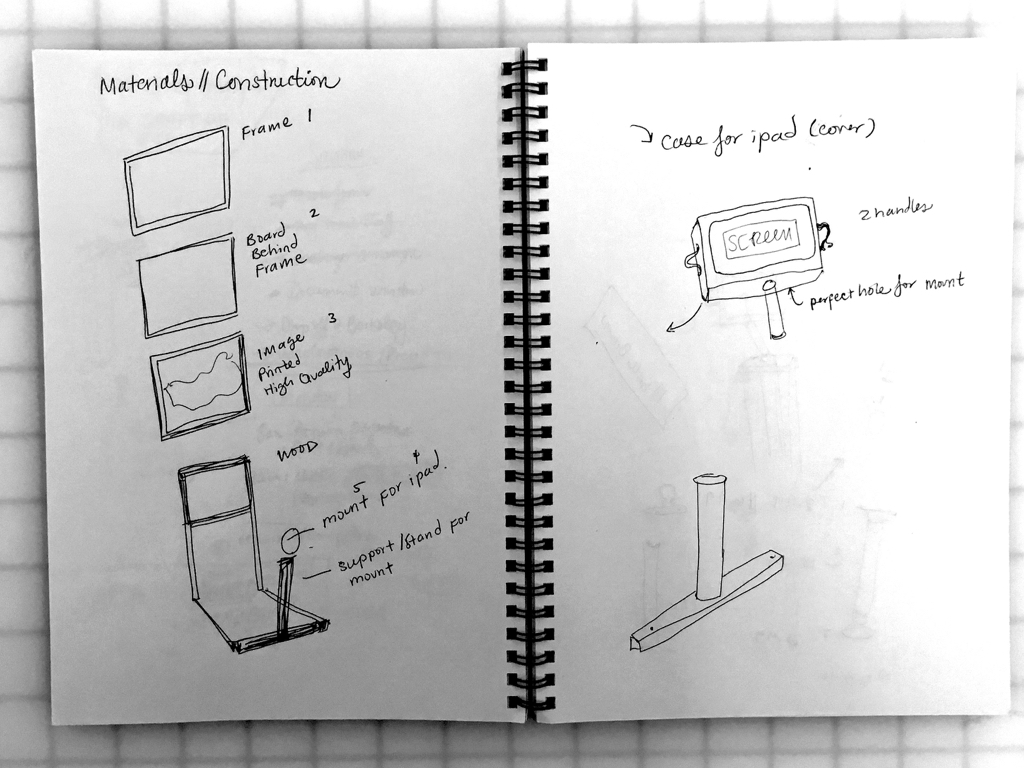 Materials // Construction
Frame 1
2
Board
Behind
Frame
3
Image
Printed
High Quality
WOOD
4
5
mount for ipad.
support/stand for
mount
case for ipad (cover)
2 handles
SCREEN
perfect hole for mount